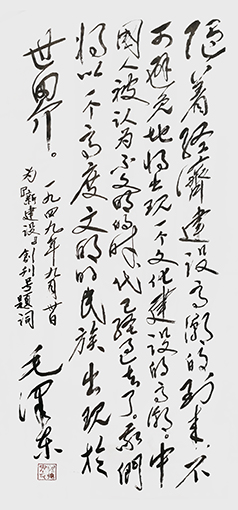 随着经济建设高潮的到来，不
可避免地将出现一个文化建设的高潮。中
国人被认为不文明的时代已经过去了。我们
将以一个高度文明的民族出现于
世界。
一九四九年九月廿日
为《新建设》创刊号题词
毛泽东